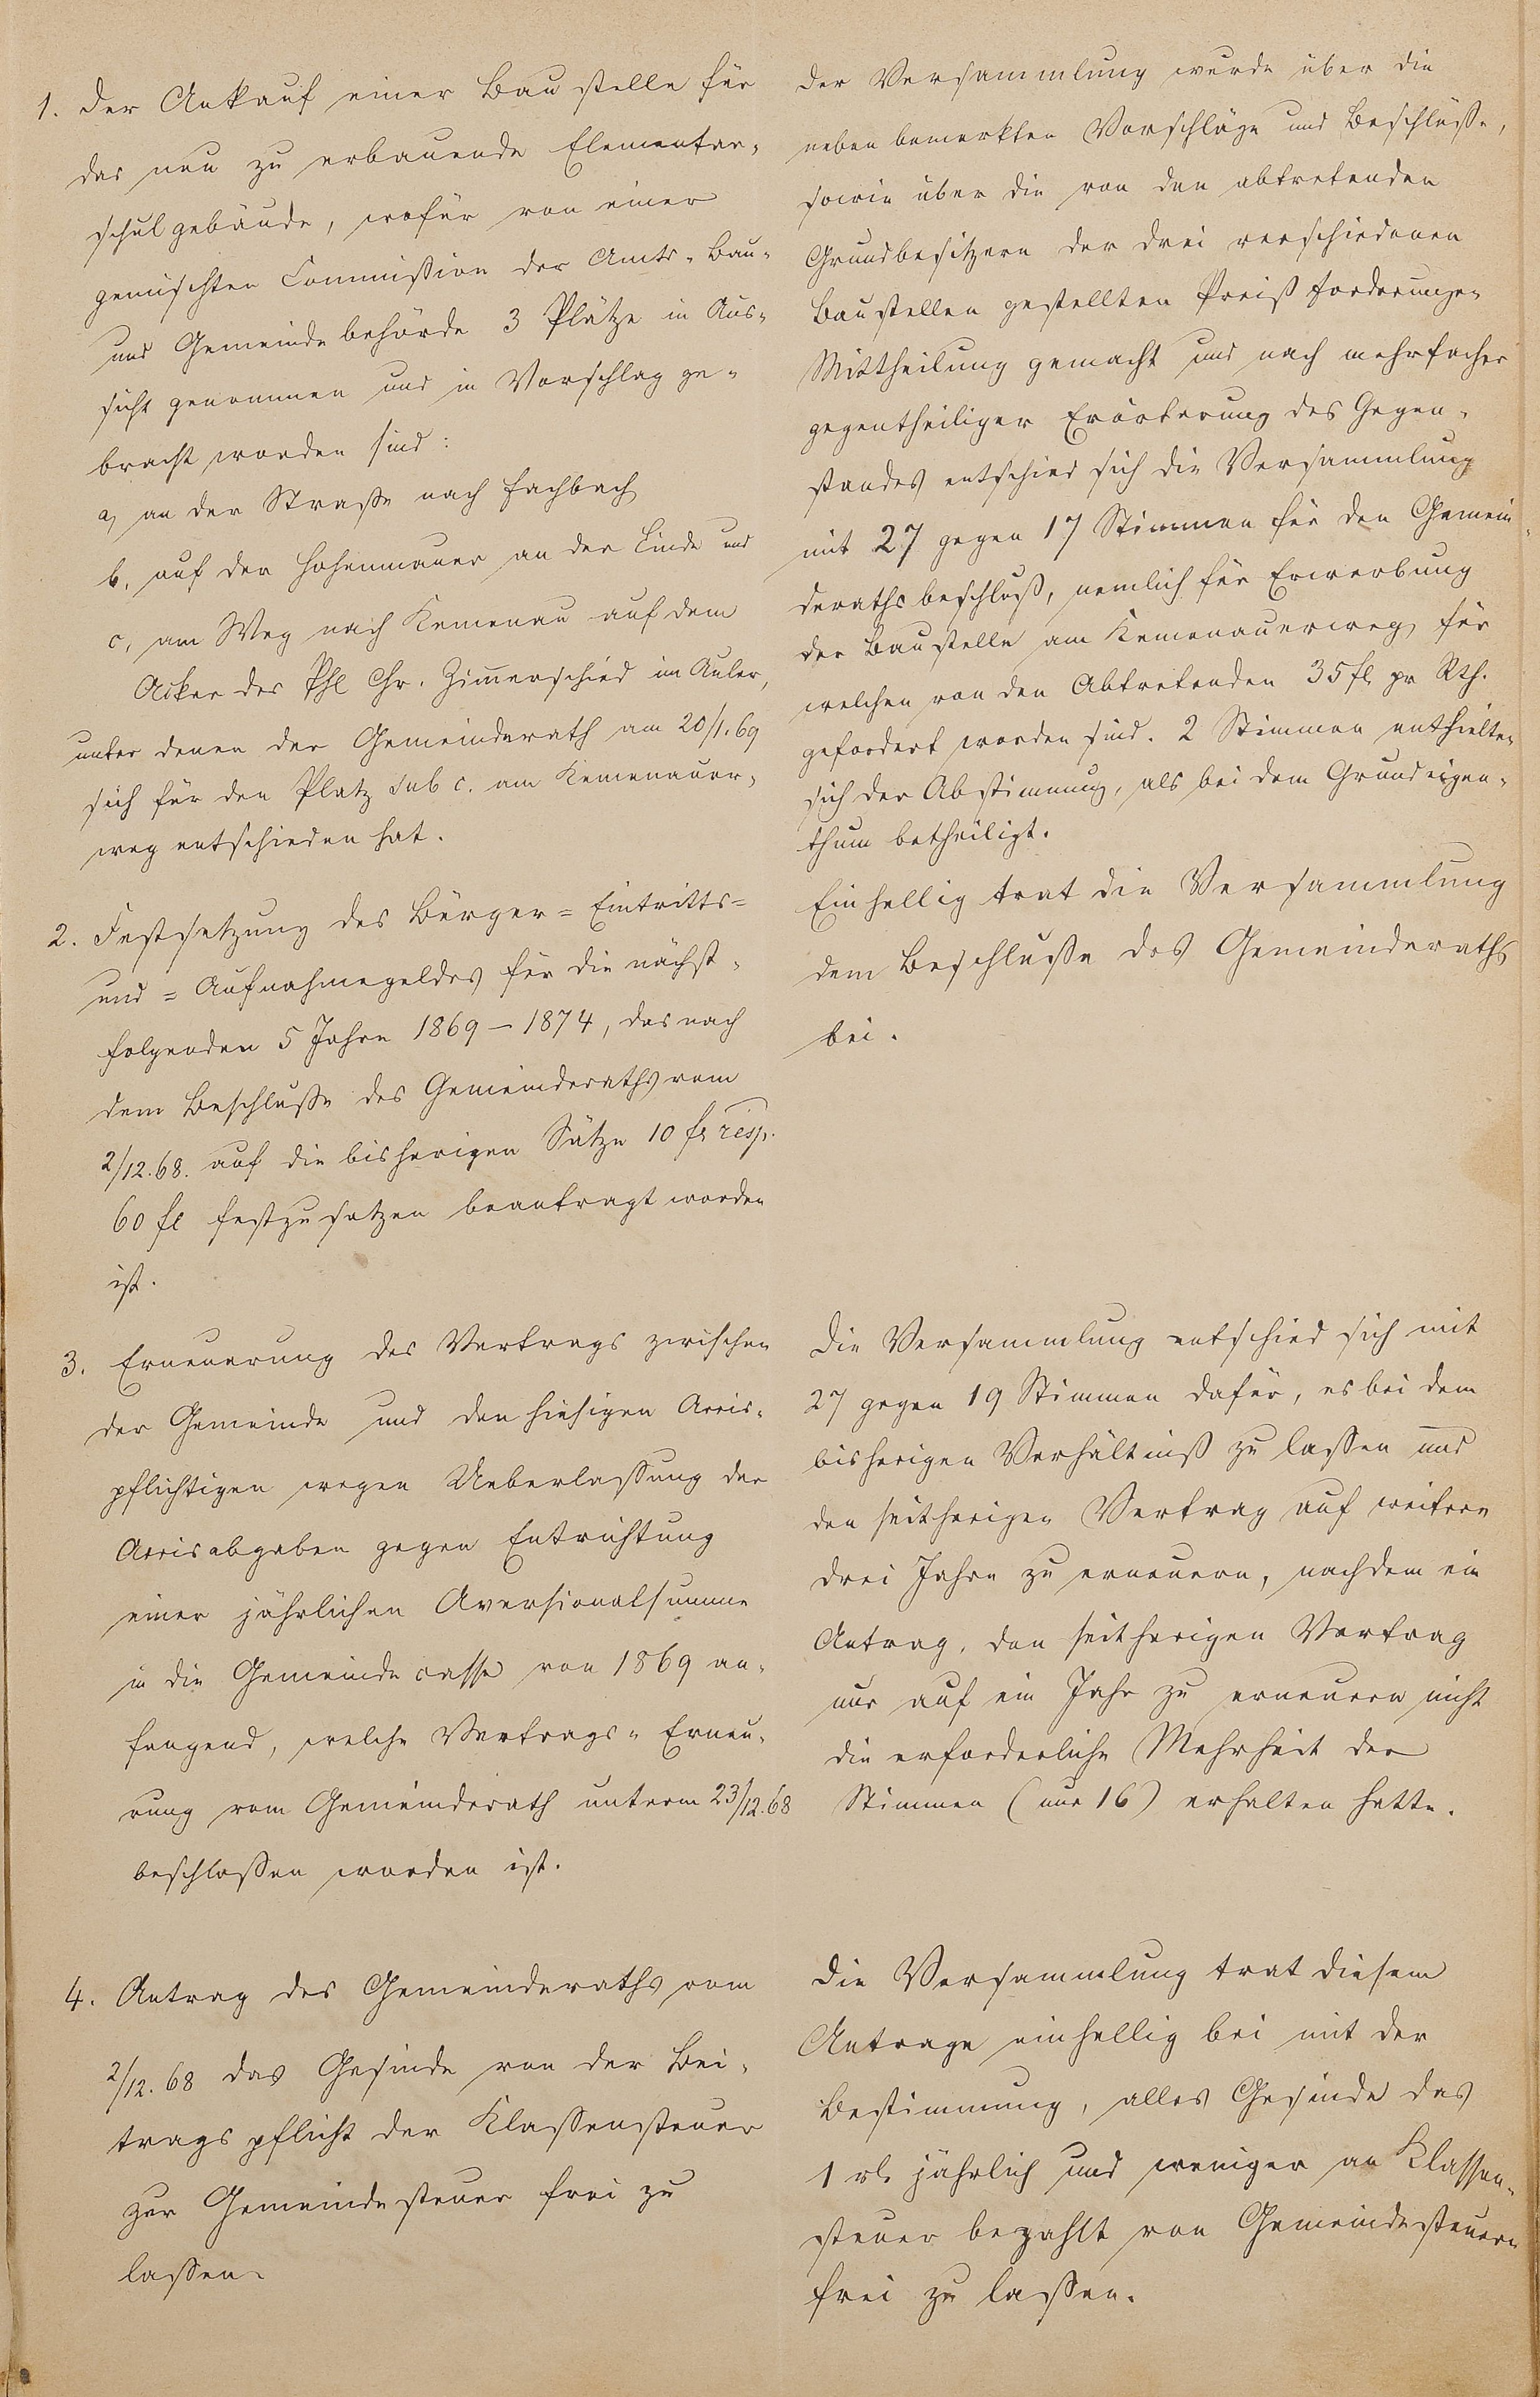 1. Der Ankauf einer Baustelle für
das neu zu erbauende Elementar-
schulgebäude, wofür von einer
gemischten Commißion der Amts- Bau-
und Gemeindebehörde 3 Plätze in Aus-
sicht genommen und in Vorschlag ge-
bracht worden sind:
a, an der Straße nach Fachbach
b, auf der Hohenmauer an der Linde und
c, am Weg nach Kemenau auf dem
Acker des Phl Chr. Zimmerschied im Auler,
unter denen der Gemeinderath am 20/1.69
sich für den Platz sub c. am Kemenauer-
weg entschieden hat.
2. Festsetzung des Bürger= Eintritts=
und = Aufnahmegeldes für die nächst-
folgenden 5 Jahre 1869 – 1874, das nach
dem Beschluße des Gemeinderaths vom
2/12.68. auf die bisherigen Sätze 10 fl resp.
60 fl festzusetzen beantragt worden
ist.
3. Erneuerung des Vertrags zwischen
der Gemeinde und den hiesigen Accis-
pflichtigen wegen Ueberlaßung der
Accisabgaben gegen Entrichtung
einer jährlichen Aversionalsumme
in die Gemeindecasse von 1869 an-
fangend, welche Vertrags- Erneu-
rung vom Gemeinderath unterm 23/12.68
beschloßen worden ist.
4. Antrag des Gemeinderaths vom
2/12.68 das Gesinde von der Bei-
tragspflicht der Klaßensteuer
zur Gemeindesteuer frei zu
laßen.
Der Versammlung wurde über die
neben bemerkten Vorschläge und Beschlüße,
sowie über die von den abtretenden
Grundbesitzern der drei verschiedenen
Baustellen gestellten Preißforderungen
Mittheilung gemacht und nach mehrfacher
gegentheiliger Erörterung des Gegen-
standes entschied sich die Versammlung
mit 27 gegen 17 Stimmen für den Gemein-
derathsbeschluß, nemlich für Erwerbung
der Baustelle am Kemenauerweg, für
welchen von den Abtretenden 35 fl pr Rth.
gefordert worden sind. 2 Stimmen enthielten
sich der Abstimmung, als bei dem Grundeigen-
thum betheiligt.
Einhellig trat die Versammlung
dem Beschluße des Gemeinderaths
bei.
Die Versammlung entschied sich mit
27 gegen 19 Stimmen dafür, es bei dem
bisherigen Verhältniß zu laßen und
den seitherigen Vertrag auf weitere
drei Jahre zu erneuern, nachdem ein
Antrag, den seitherigen Vertrag
nur auf ein Jahr zu erneuern nicht
die erforderliche Mehrheit der
Stimmen (nur 16) erhalten hatte.
Die Versammlung trat diesem
Antrage einhellig bei mit der
Bestimmung, alles Gesinde das
1 rl. jährlich und weniger an Klassen-
steuer bezahlt von Gemeindesteuern
frei zu laßen.